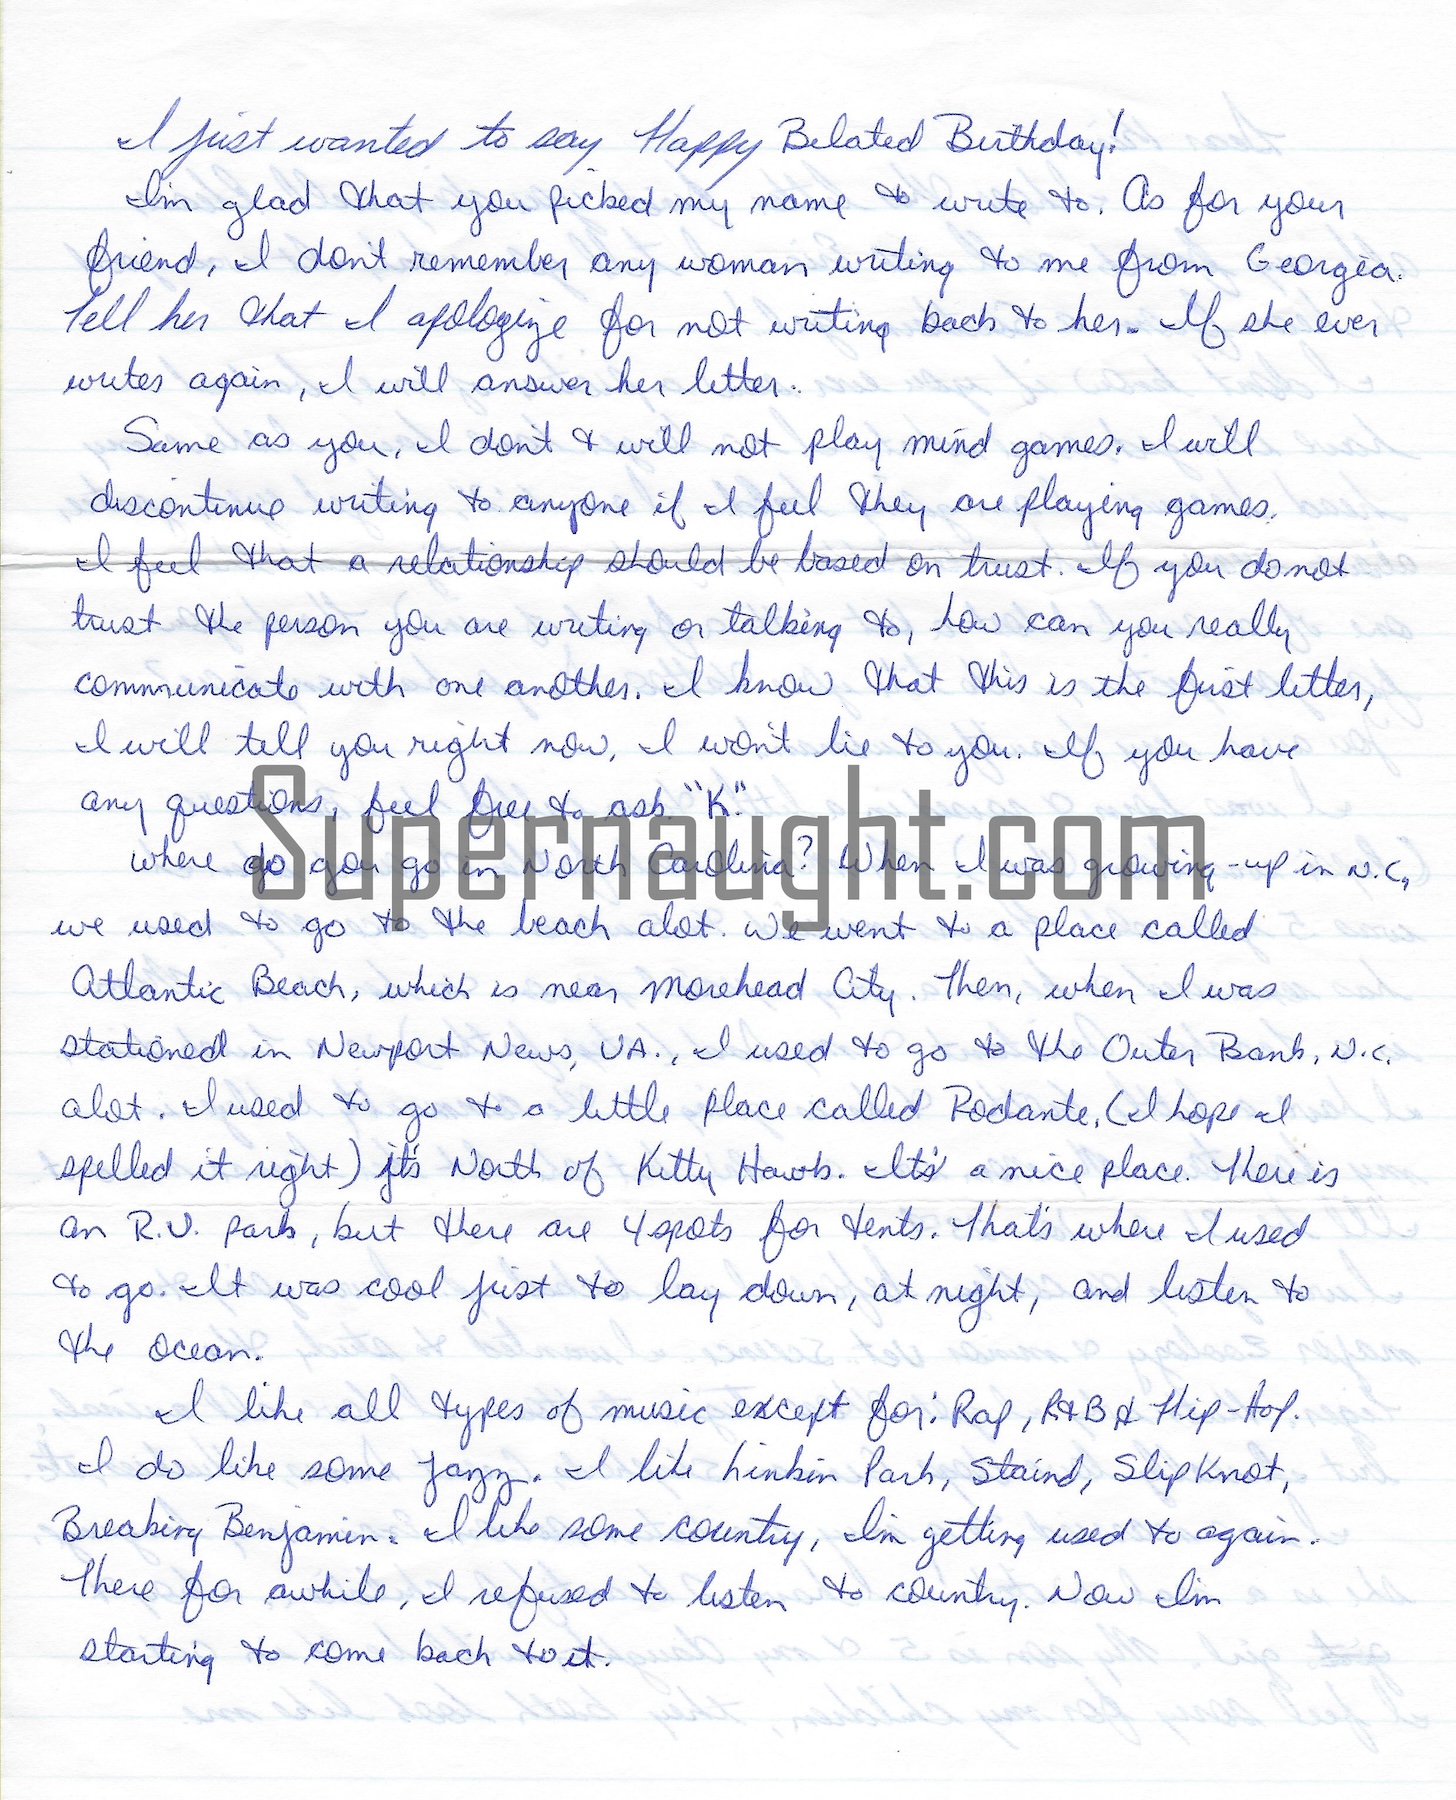 I just wanted to say Happy Belated Birthday!
I'm glad that you picked my name to write to. As for your
friend, I don't remember any woman writing to me from Georgia.
Tell her that I apologize for not writing back to her. If she ever
writes again, I will answer her letter.
Same as you, I don't & will not play mind games. I will
discontinue writing to anyone if I feel they are playing games.
I feel that a relationship should be based on trust. If you do not
trust the person you are writing or talking to, how can you really
communicate with one another. I know that this is the first letter,
I will tell you right now, I won't lie to you. If you have
any questions, feel free to ask. "K".
Supernaught.com
Where do you go in North Carolina? When I was growing-up in N.C,
we used to go to the beach alot. We went to a place called
Atlantic Beach, which is near Morehead City. Then, when I was
stationed in Newport News, VA., I used to go to the Outer Bank, N.C.
alot. I used to go to a little place called Rodante, (I hope I
spelled it right) it's North of Kitty Hawk. It's a nice place. There is
an R.V. park, but there are 4 spots for tents. That's where I used
to go. It was cool just to lay down, at night, and listen to
the ocean.
I like all types of music except for: Rap, R&B & Hip-Hop.
I do like some Jazz. I like Linkin Park, Staind, SlipKnot,
Breaking Benjamin. I like some country, I'm getting used to again.
There for awhile, I refused to listen to country. Now I'm
starting to come back to it.